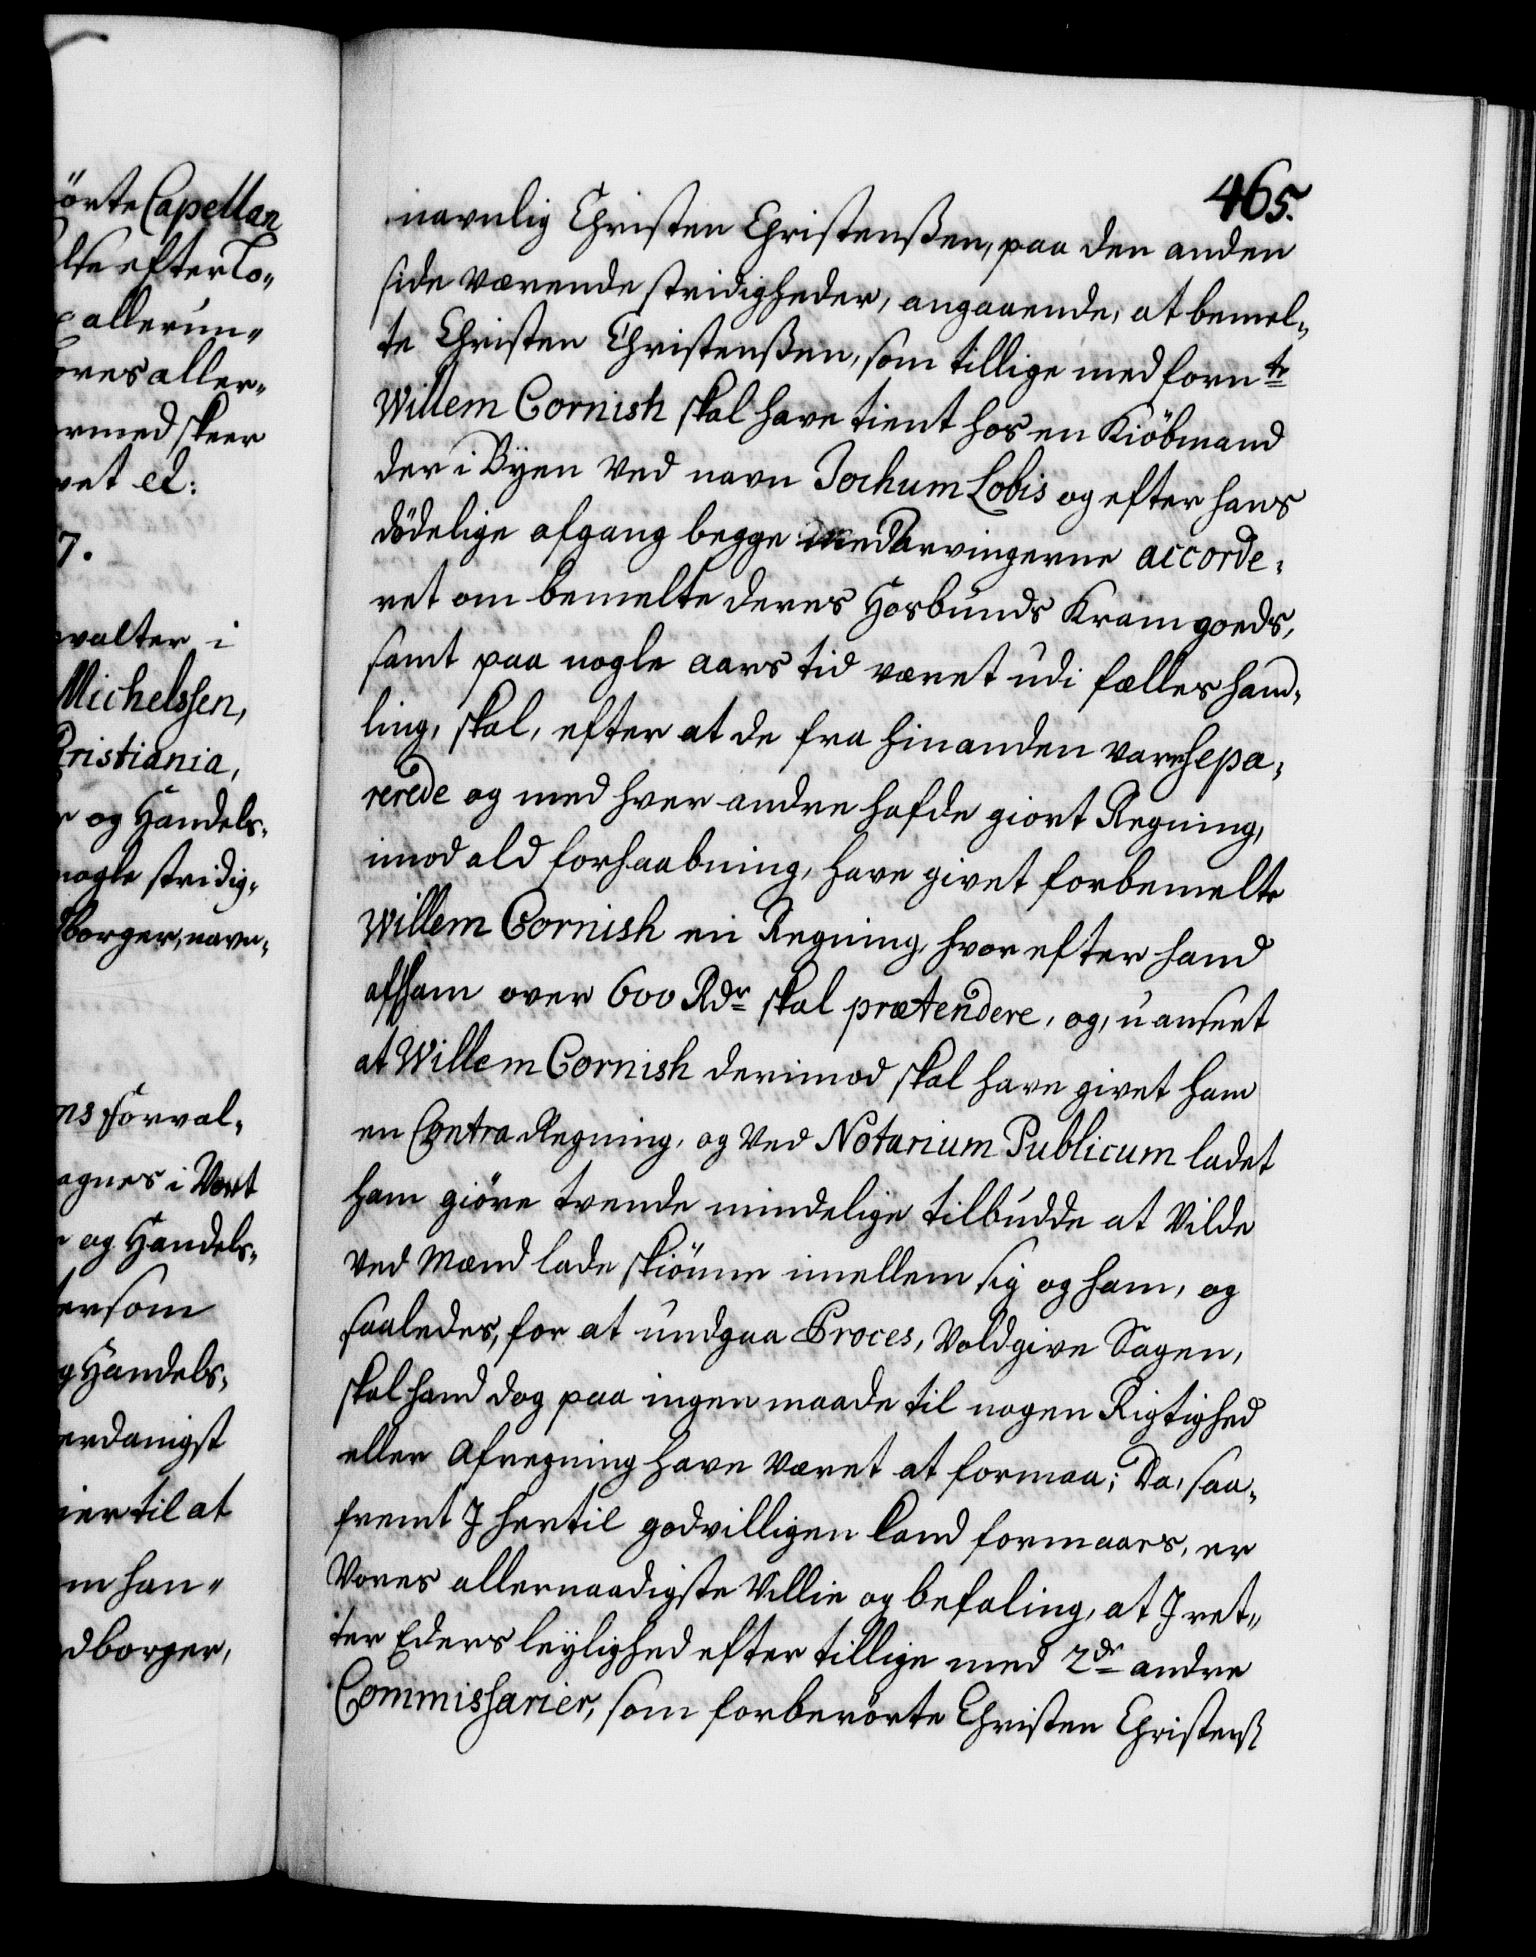 örte Capellan
lse efter Lo⸗
allerun⸗
ores aller⸗
rmed skeer
vet et:
7.
valter i
Michelssen,
Christiania,
r og Handels⸗
nogle stridig⸗
borger, navn⸗
ns Forval⸗
agnes i Vort
r og Handels⸗
ersom
g Handels⸗
erdanigst
ier til at
m han⸗
dborger,
465.
navnlig Christen Christenßen, paa den anden
side værende stridigheder, angaaende, at bemel⸗
te Christen Christenßen, som tillige med forn te
Willem Cornish skal have tient hos en Kiöbmand
der i Byen Ved navn Jochum Lobis og efter hans
dödelige afgang begge med Arvingerne accorde⸗
ret om bemelte deres Hosbunds Kramgoeds,
samt paa nogle aars tid været udi fælles hand⸗
ling, skal, efter at de fra hinanden vare sepa⸗
rerede og med hver andre hafde giort Regning,
imod ald forhaabning, have givet forbemelte
Willem Cornish en Regning, hvorefter hand
af ham over 600 Rdr skal prætendere, og, uanseet
at Willem Cornish derimod skal have givet ham
en Contra Regning, og Ved Notarium Publicum ladet
ham giöre tvende mindelige tilbudde at Vilde
Ved Mænd lade skiönne imellem sig og ham, og
saaledes, for at undgaa Proces, Voldgive Sagen,
skal hand dog paa ingen maade til nogen Rigtighed
eller Afregning have Været at formaa; Da, saa⸗
fremt J hertil godvilligen kand formaaes, er
Vores allernaadigste Villie og befaling, at J ret⸗
ter Eders leylighed efter tillige med 2de andre
Commissarier, som forberörte Christen Christenß